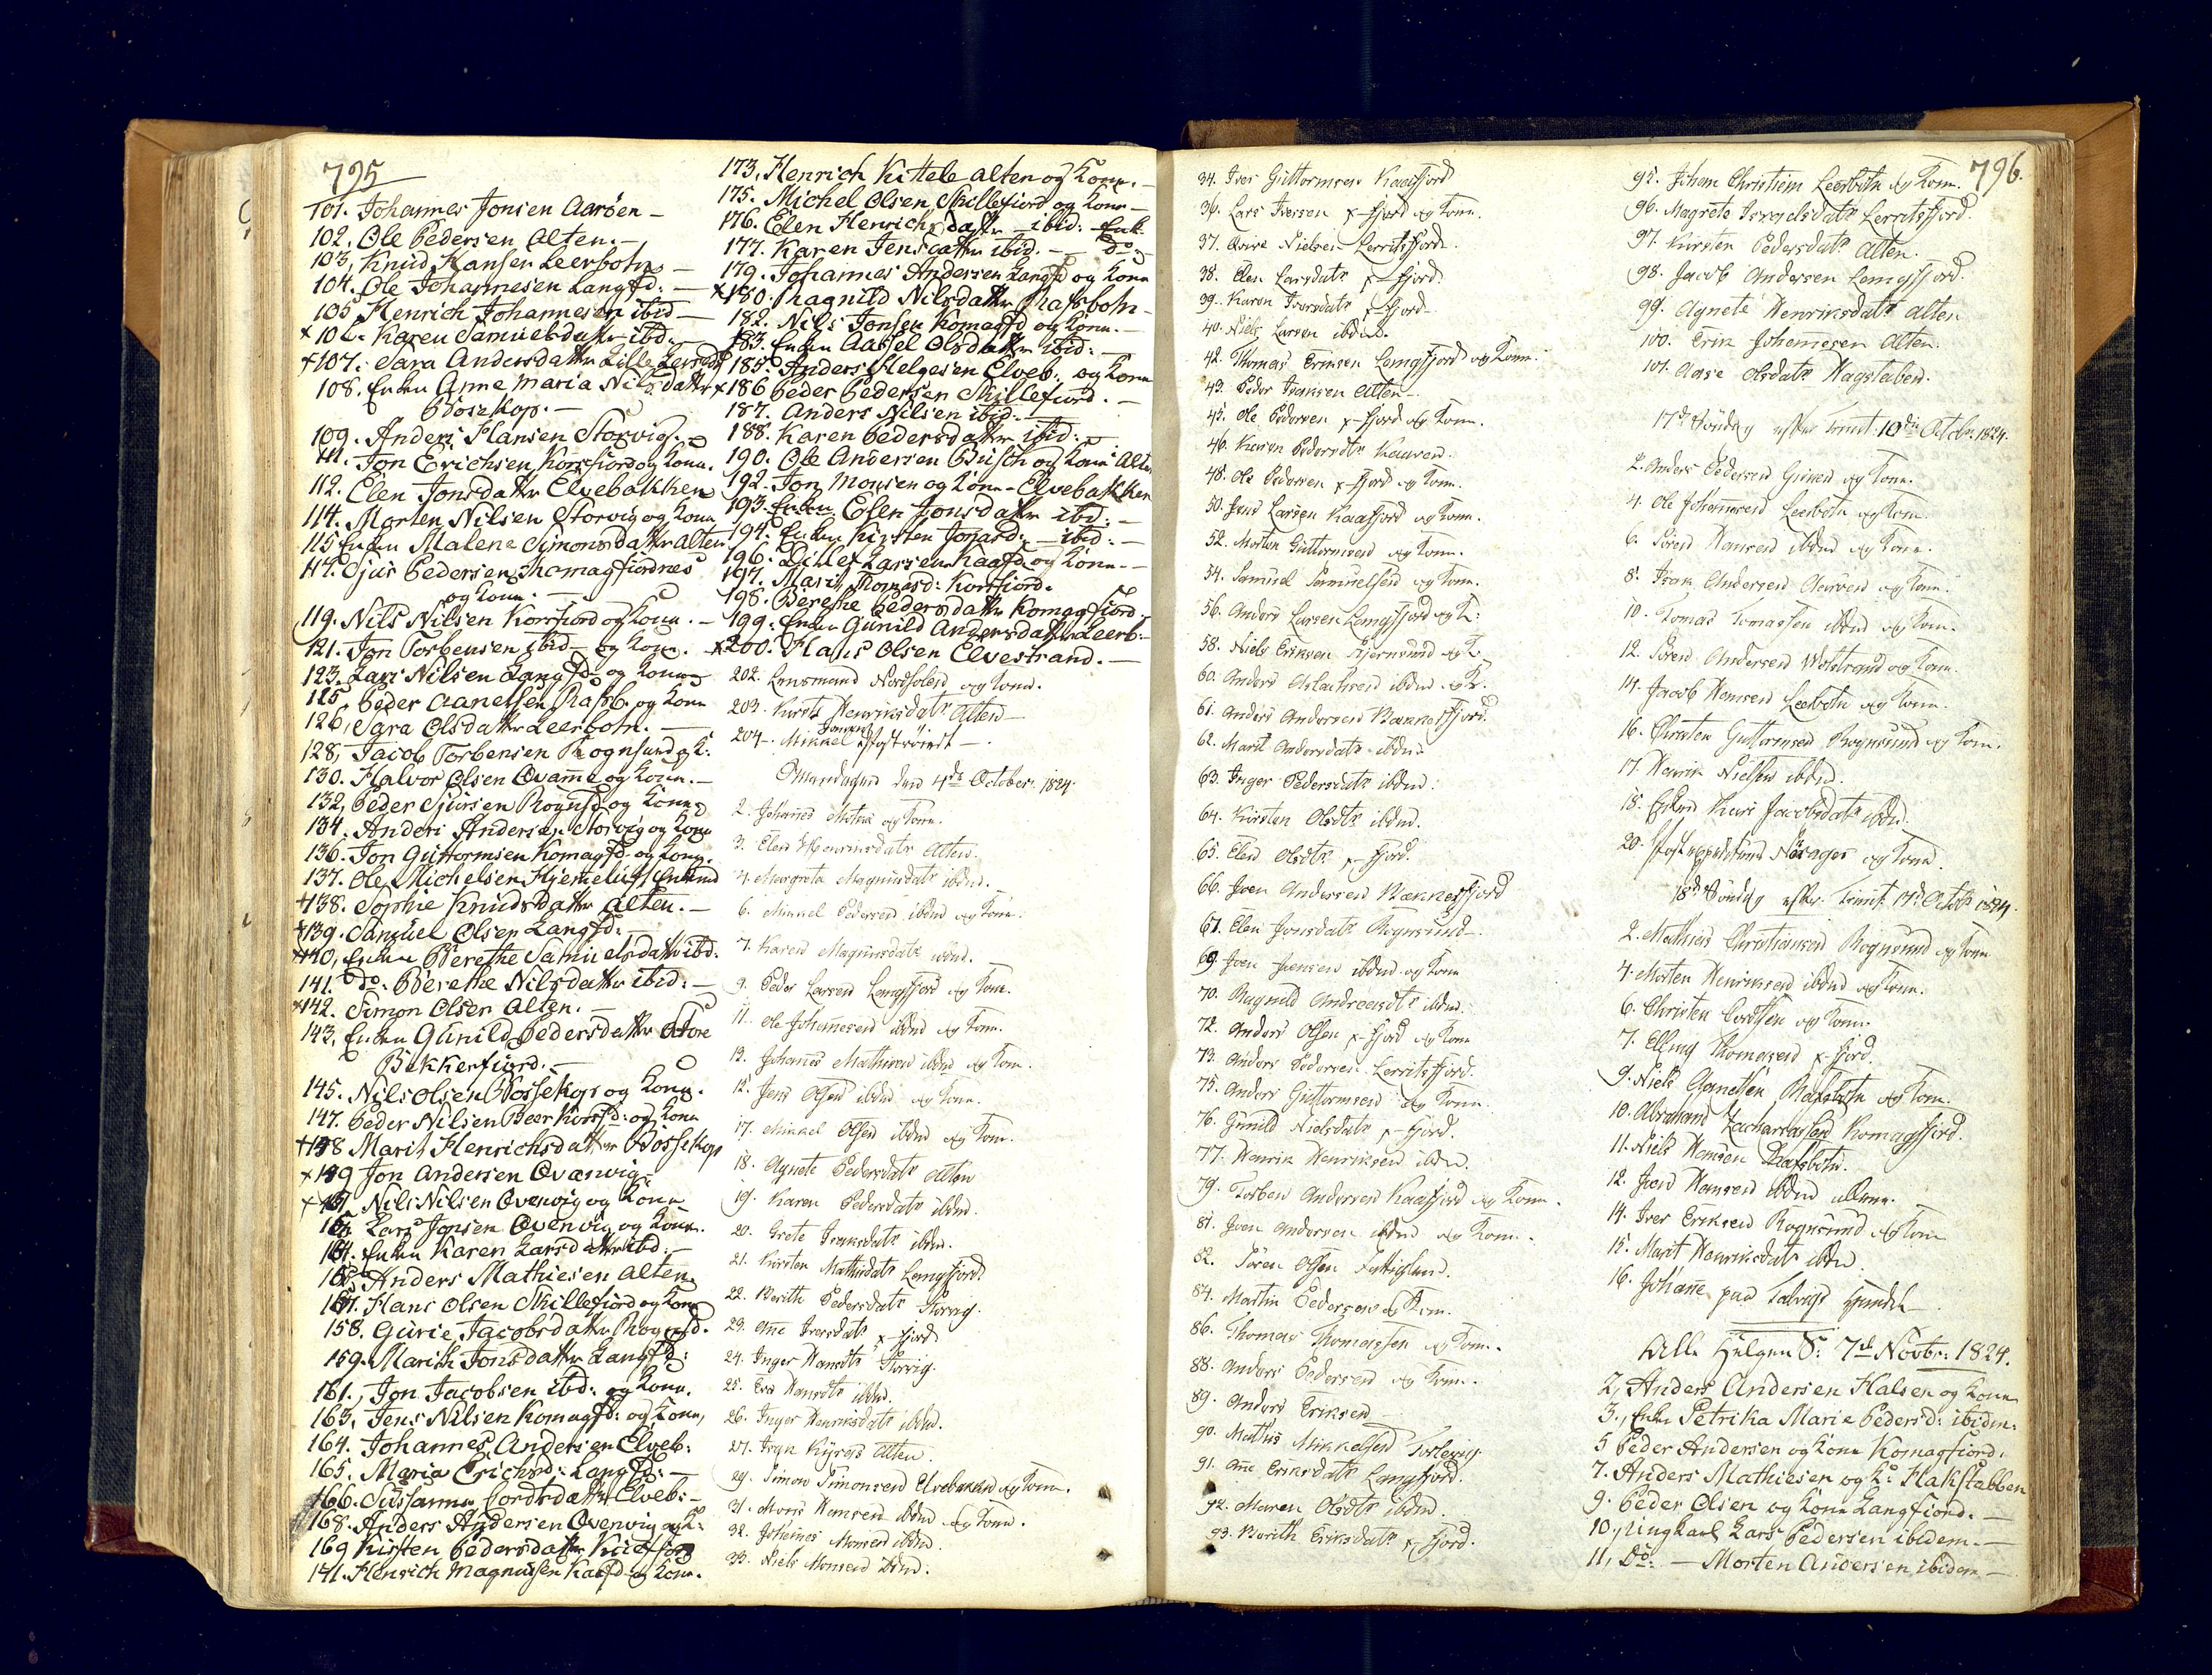 795
101. Johannes Jonsen Aarøen -
102. Ole Pedersen Alten. -
103, Knud Hansen Leerbotn -
104. Ole Johannesen Langfd: -
105 Henrich Johannesen ibid -
x 106. Karen Samuelsdattr ibd: -
x 107. Sara Andersdattr Lille
108. Enken Anne Maria Nilsdattr
Bosekop. -
109. Anders Hansen Storvig. -
111. Jon Erichsen Korsfiord og Kone.
112. Elen Jonsdattr Elvebakken
114. Morten Nilsen Storvig og Kone
115 Enken Malene Simonsdattr Alten
117. Sjur Pedersen Komagfiordnes
og Kone. -
119. Nils Nilsen Korsfiord og Kone. -
121. Jon Torbensen ibid - og Kone.
123. Lars Nilsen Langfd og Kone
125 Peder Aanetsen Rafsb. og Kone
126, Sara Olsdattr Leerbotn. -
128, Jacob Torbensen Rognsund og K:
130. Halvor Olsen Qvame og Kone. -
132, Peder Sjursen Rognsd og Kone
134. Anders Andersen Storvig og Kone
136. Jon Guttormsen Komagfd og Kone.
137. Ole Michelsen Enkemd
x 138. Sophie Knudsdattr Alten. -
x 139. Samuel Olsen Langfd:
x 140, Enken Berethe Samuelsdattr ibd:
141. Do. Berethe Nilsdattr ibid: -
x 142. Simon Olsen Alten. -
143, Enken Gunild Pedersdattr Store
Bekkerfiord. -
145. Nils Olsen Bossekop og Kone.
147. Peder Nilsen Korsfd: og Kone
x 148 Marit Henrichsdatter Bossekop
x 149 Jon Andersen Qvænvig -
x 151. Nils Nilsen Qvenvig og Kone
153. Lars Jonsen Qvenvig og Kone.
154. Enken Karen Larsdattr ibd. -
155. Anders Mathiesen Alten.
157. Hans Olsen Skillefiord og Kone
158. Gurie Jacobsdattr Rognsd.
159. Marith Jonsdattr Langfd:
161, Jon Jacobsen ibd: og Kone.
163, Jens Nilsen Komagfd: og Kone,
164. Johannes Andersen Elveb:
165. Maria Erichsd: Langfd: -
166. Susanna Cordsdattr Elveb: -
168. Anders Andersen Qvenvig og K:
169 Kirsten Pedersdattr
171. Henrich Magnusen Kaafd og Kone.
173, Henrich Kittele Alten og Kone. -
175. Michel Olsen Skillefiord og Kone -
176. Elen Henrichsdattr - ibid: Enk:
177. Karen Jensdattr ibid. - Do.
179. Johannes Andersen Langfd og Kone
x 180. Ragnild Nilsdattr Rafsbotn -
182. Nils Jonsen Komagfd og Kone. -
183. Enken Aassel Olsdattr ibid: -
185. Anders Helgesen Elveb: og Kone
x 186 Peder Pedersen Skillefiord. -
187. Anders Nilsen ibid: -
188. Karen Pedersdattr ibid: -
190. Ole Andersen Busch og Kone Alten
192. Jon Monsen og Kone - Elvebakken
193. Enken Elen Jonsdattr ibd: -
194. Enken Kirsten Jonsd: - ibid: -
196. Ditlef Larsen Kaafd og Kone. -
197. Marit Thomasd: Korsfiord.
198. Berethe Pedersdattr Komagfiord. -
199: Enken Gunild Andersdattr Leerb: -
x 200. Hans Olsen Elvestrand. -
202. Lensmand og Kone.
203. Kirst: Henriksdatr Alten -
204. Mikkel Jonsen -
Mandagen den 4de October: 1824.
2. Johannes og Kone.
3. Elen Henriksdatr Alten.
4. Margrete Magnusdatr ibdm.
6. Mikkel Pedersen ibdm og Kone.
7. Karen Magnusdatr ibdm.
9. Peder Larsen Langfjord og Kone.
11. Ole Johannesen ibdm og Kone.
13. Johannes Mathisen ibdm og Kone.
15. Jens Olsen ibdm og Kone.
17. Mikkel Olsen ibdm og Kone.
18. Agnete Pedersdatr Alten
19. Karen Pedersdatr ibdm.
20. Grete Isaksdatr ibdm.
21. Kirsten Mathisdatr Langfjord.
22. Berith Pedersdatr Storvig.
23. Ane Iversdatr x-fjord
24. Inger Hansdtr Storvig.
25. Eva Hansdtr ibdm.
26. Inger Henriksdatr ibdm.
27. Alten.
29. Simon Simonsen Elvebakken og Kone.
31. Mons Hansen ibdm og Kone.
32. Johannes Monsen ibdm.
33. Niels Monsen ibdm.
796.
34. Iver Guttormsen Kaafjord
36. Lars Iversen x-fjord og Kone.
37. Nielsen Lerritsfjord.
38. Elen Larsdatr x-fjord
39. Karen Iversdatr x-fjord
40. Niels Larsen ibdm.
42. Thomas Eriksen Langfjord og Kone.
43. Peder Isaksen Alten -
45. Ole Pedersen x-fjord og Kone.
46. Karen Pedersdtr
48. Ole Pedersen x-fjord og Kone.
50. Jens Larsen Kaafjord og Kone.
52. Morten Guttormsen og Kone.
54. Samuel Samuelsen og Kone.
56. Anders Larsen Langfjord og K:
58. Niels Eriksen Stjernsund og K.
60. Anders Aslaksen ibdm og K.
61. Anders Andersen
62. Marit Andersdatr ibdm.
63. Inger Pedersdatr ibdm:
64. Kirsten Olsdtr ibdm.
65. Elen Olsdtr x-fjord.
66. Joen Andersen
67. Elen Jonsdatr Rognsund -
69. Joen Joensen ibdm og Kone
70. Ragnild Andreasdtr ibdm.
72. Anders Olsen x-fjord og Kone
73. Anders Pedersen Lerritsfjord.
75. Anders Guttormsen og Kone.
76. Gunild Nielsdatr x-fjord.
77. Henrik Henriksen ibdm.
79. Torben Andersen Kaafjord og Kone.
81. Joen Andersen ibdm og Kone.
82. Søren Olsen
84. Martin Pedersen og Kone.
86. Thomas Thomassen og Kone.
88. Anders Pedersen og Kone.
89. Anders Eriksen
90. Mathis Mikkelsen
91. Ane Eriksdatr Langfjord.
92. Maren Olsdtr ibdm.
93. Berith Eriksdatr x-fjord.
95. Johan Christian Leerbotn og Kone.
96. Magrete Israelsdatr Lerritsfjord.
97. Kirsten Pedersdatr Alten.
98. Jacob Andersen Langfjord.
99. Agnete Henriksdatr Alten
100. Erik Johannesen Alten.
101. Aase Olsdatr
17de Søndag efter Trinit: 10de Octobr. 1824.
2. Anders Pedersen og Kone.
4. Ole Johannesen Leerbotn og Kone
6. Søren Hansen ibdm og Kone.
8. Isak Andersen Aarøen og Kone.
10. Tomas Tomassen ibdm og Kone.
12. Søren Andersen og Kone.
14. Jacob Hansen Leerbotn og Kone.
16. Christen Guttormsen Rognsund og Kone.
17. Henrik Nielsen ibdm.
18. Enken Kari Jacobsdatr ibdm.
20. og Kone.
18de Søndag efter Trinit: 17de Octobr 1824.
2. Mathias Christiansen Rognsund og Kone
4. Morten Henriksen ibdm og Kone.
6. Christen Cordtsen og Kone.
7. Elling Thomassen x-fjord.
9. Niels Aanetsen Rafsbotn og Kone.
10. Abraham Zachariassen Komagfjord.
11. Niels Hansen Rafsbotn.
12. Joen Hansen ibdm
14. Iver Eriksen Rognsund og Kone
15. Marit Henriksdatr ibdm.
16. Johane paa Talvigs
Alle Helgen S: 7de Novbr: 1824.
2, Anders Andersen Halsen og Kone
3., Enke Petrika Marie Pedersd: ibidm:
5 Peder Andersen og Kone Komagfiord.
7. Anders Mathiesen og K: Flakstabben
9. Peder Olsen og Kone Langfiord. -
10, Ungkarl Lars Pedersen ibidem. -
11, Do: - Morten Andersen ibidem -